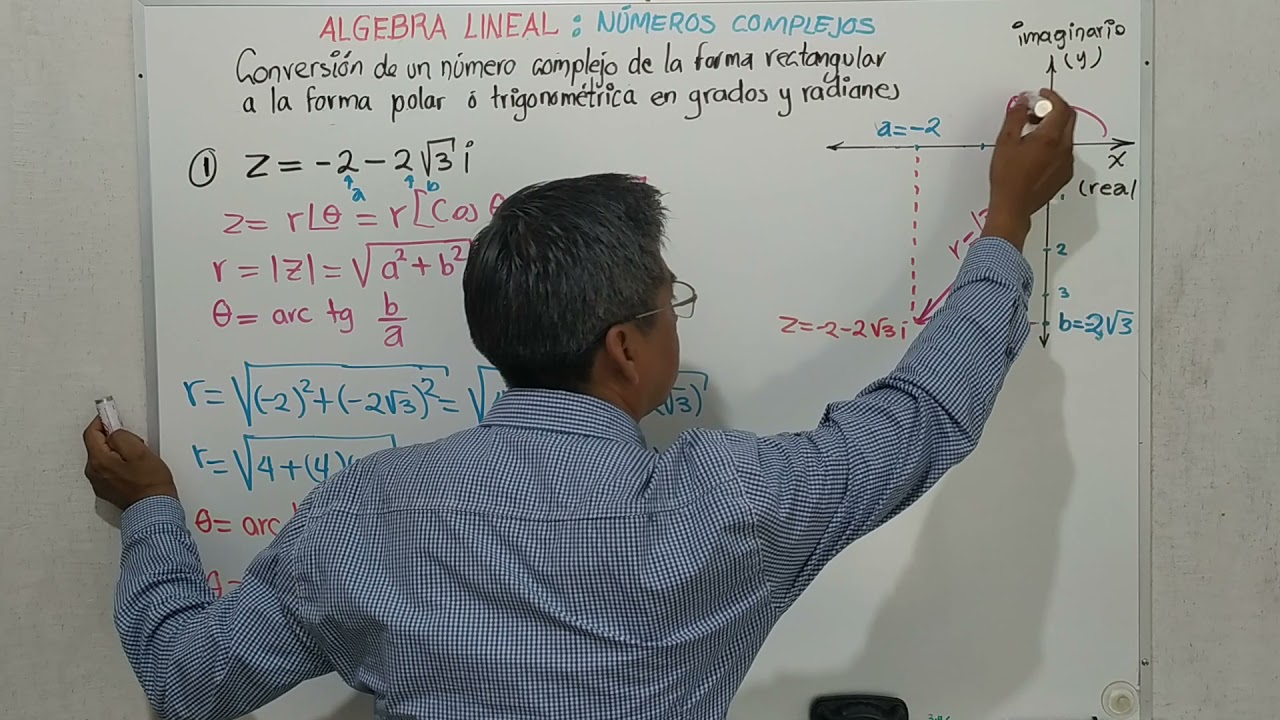 ALGEBRA LINEAL : NÚMEROS COMPLEJOS
Conversión de un número complejo de la forma rectangular
a la forma polar ó trigonométrica en grados y radianes
① Z = -2 - 2√3 i
a b
z = r∠θ = r[Cos θ
r = |Z| = √a² + b²
θ = arc tg b/a
r = √(-2)² + (-2√3)² = √
√3)
r = √4 + (4)
θ = arc
imaginario
(y)
a = -2
x
(real
r =
2
3
Z = -2 - 2√3 i
b = -2√3